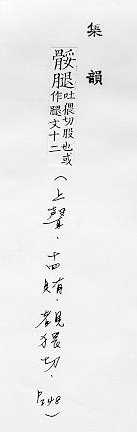 集韻
骽腿吐猥切股也或
作腿文十二
(上聲．十四賄．覩猥切．P348)